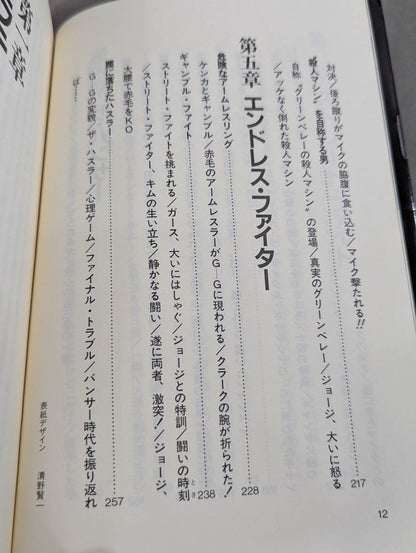 対決／後ろ蹴りがマイクの脇腹に食い込む／マイク撃たれる!!
“殺人マシン”を自称する男……217
自称“グリーンベレーの殺人マシン”の登場／真実のグリーンベレー／ジョージ、大いに怒る
／アッケなく倒れた殺人マシン
第五章 エンドレス・ファイター
危険なアームレスリング……228
ケンカとギャンブル／赤毛のアームレスラーがG―Gに現われる／クラークの腕が折られた!
ギャンブル・ファイト……238
ストリート・ファイトを挑まれる／ガース、大いにはしゃぐ／ジョージとの特訓／闘いの時刻
とき
／ストリート・ファイター、キムの生い立ち／静かなる闘い／遂に両者、激突!／ジョージ、
大腰で赤毛をKO
罠に落ちたハスラー……257
G―Gの変貌／ザ・ハスラー／心理ゲーム／ファイナル・トラブル／バンサー時代を振り返れ
ば……
表紙デザイン 清野賢一
12
第一章